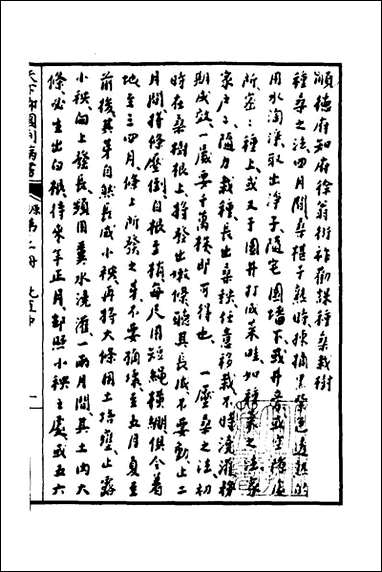 順德府知府徐翁衍祚勸課種桑栽樹
種桑之法四月間桑椹子熟時揀摘黑紫色透熟的
用水淘淨取出淨子隨宅園墻下或井旁或空隙處
所密種上或又于園井打成菜畦如種菜之法家
家戶戶隨力栽種長出桑秧任意移栽不
期成效一歲要千萬株即可得也 一壓桑之法初
時在桑樹根上將發出嫩條聽其長成不要動止二
月間將條壓倒自根于稍每尺用短繩橫綑俱令着
地至三四月條上所發之芽不要損壞至五月夏至
前後其芽自然長成小秧再將大條用土培壅止露
小秧向上發長頻用糞水澆灌一兩月間其土内大
條必生出白根待來年正月卽照小秧之處或五六
天下郡國利病書 第二冊 北直中